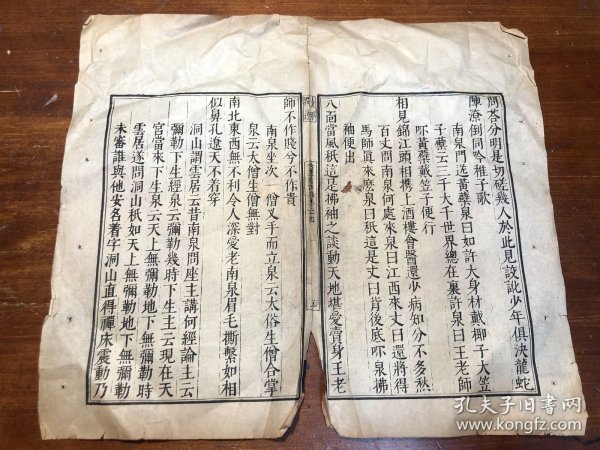 問答分明是切磋幾人於此見誵訛少年俱決龍蛇
陣潦倒同吟稚子歌
南泉門送黃蘗泉曰如許大身材戴椰子大笠
子蘗云三千大千世界總在裏許泉曰王老師
你黃蘗戴笠子便行
相見錦江頭相携上酒樓會醫還少病知分不多愁
百丈問南泉何處來泉曰江西來丈曰還將得
馬師眞來麼泉曰秖這是丈曰背後底你泉拂
袖便出
八面當風秖這是拂袖之談動天地堪愛賣身王老
師不作賤兮不作貴
南泉坐次一僧叉手而立泉云太俗生僧合掌
泉云太僧生僧無對
南北東西無不利令人深愛老南泉眉毛撕繫如相
似鼻孔遼天不着穿
洞山謂雲居云昔南泉問座主講何經論主云
彌勒下生經泉云彌勒幾時下生主云現在天
宮當來下生泉云天上無彌勒地下無彌勒時
雲居遂問洞山秖如天上無彌勒地下無彌勒
未審誰與他安名着字洞山直得禪床震動乃
孔夫子旧书网
www.kongfz.com